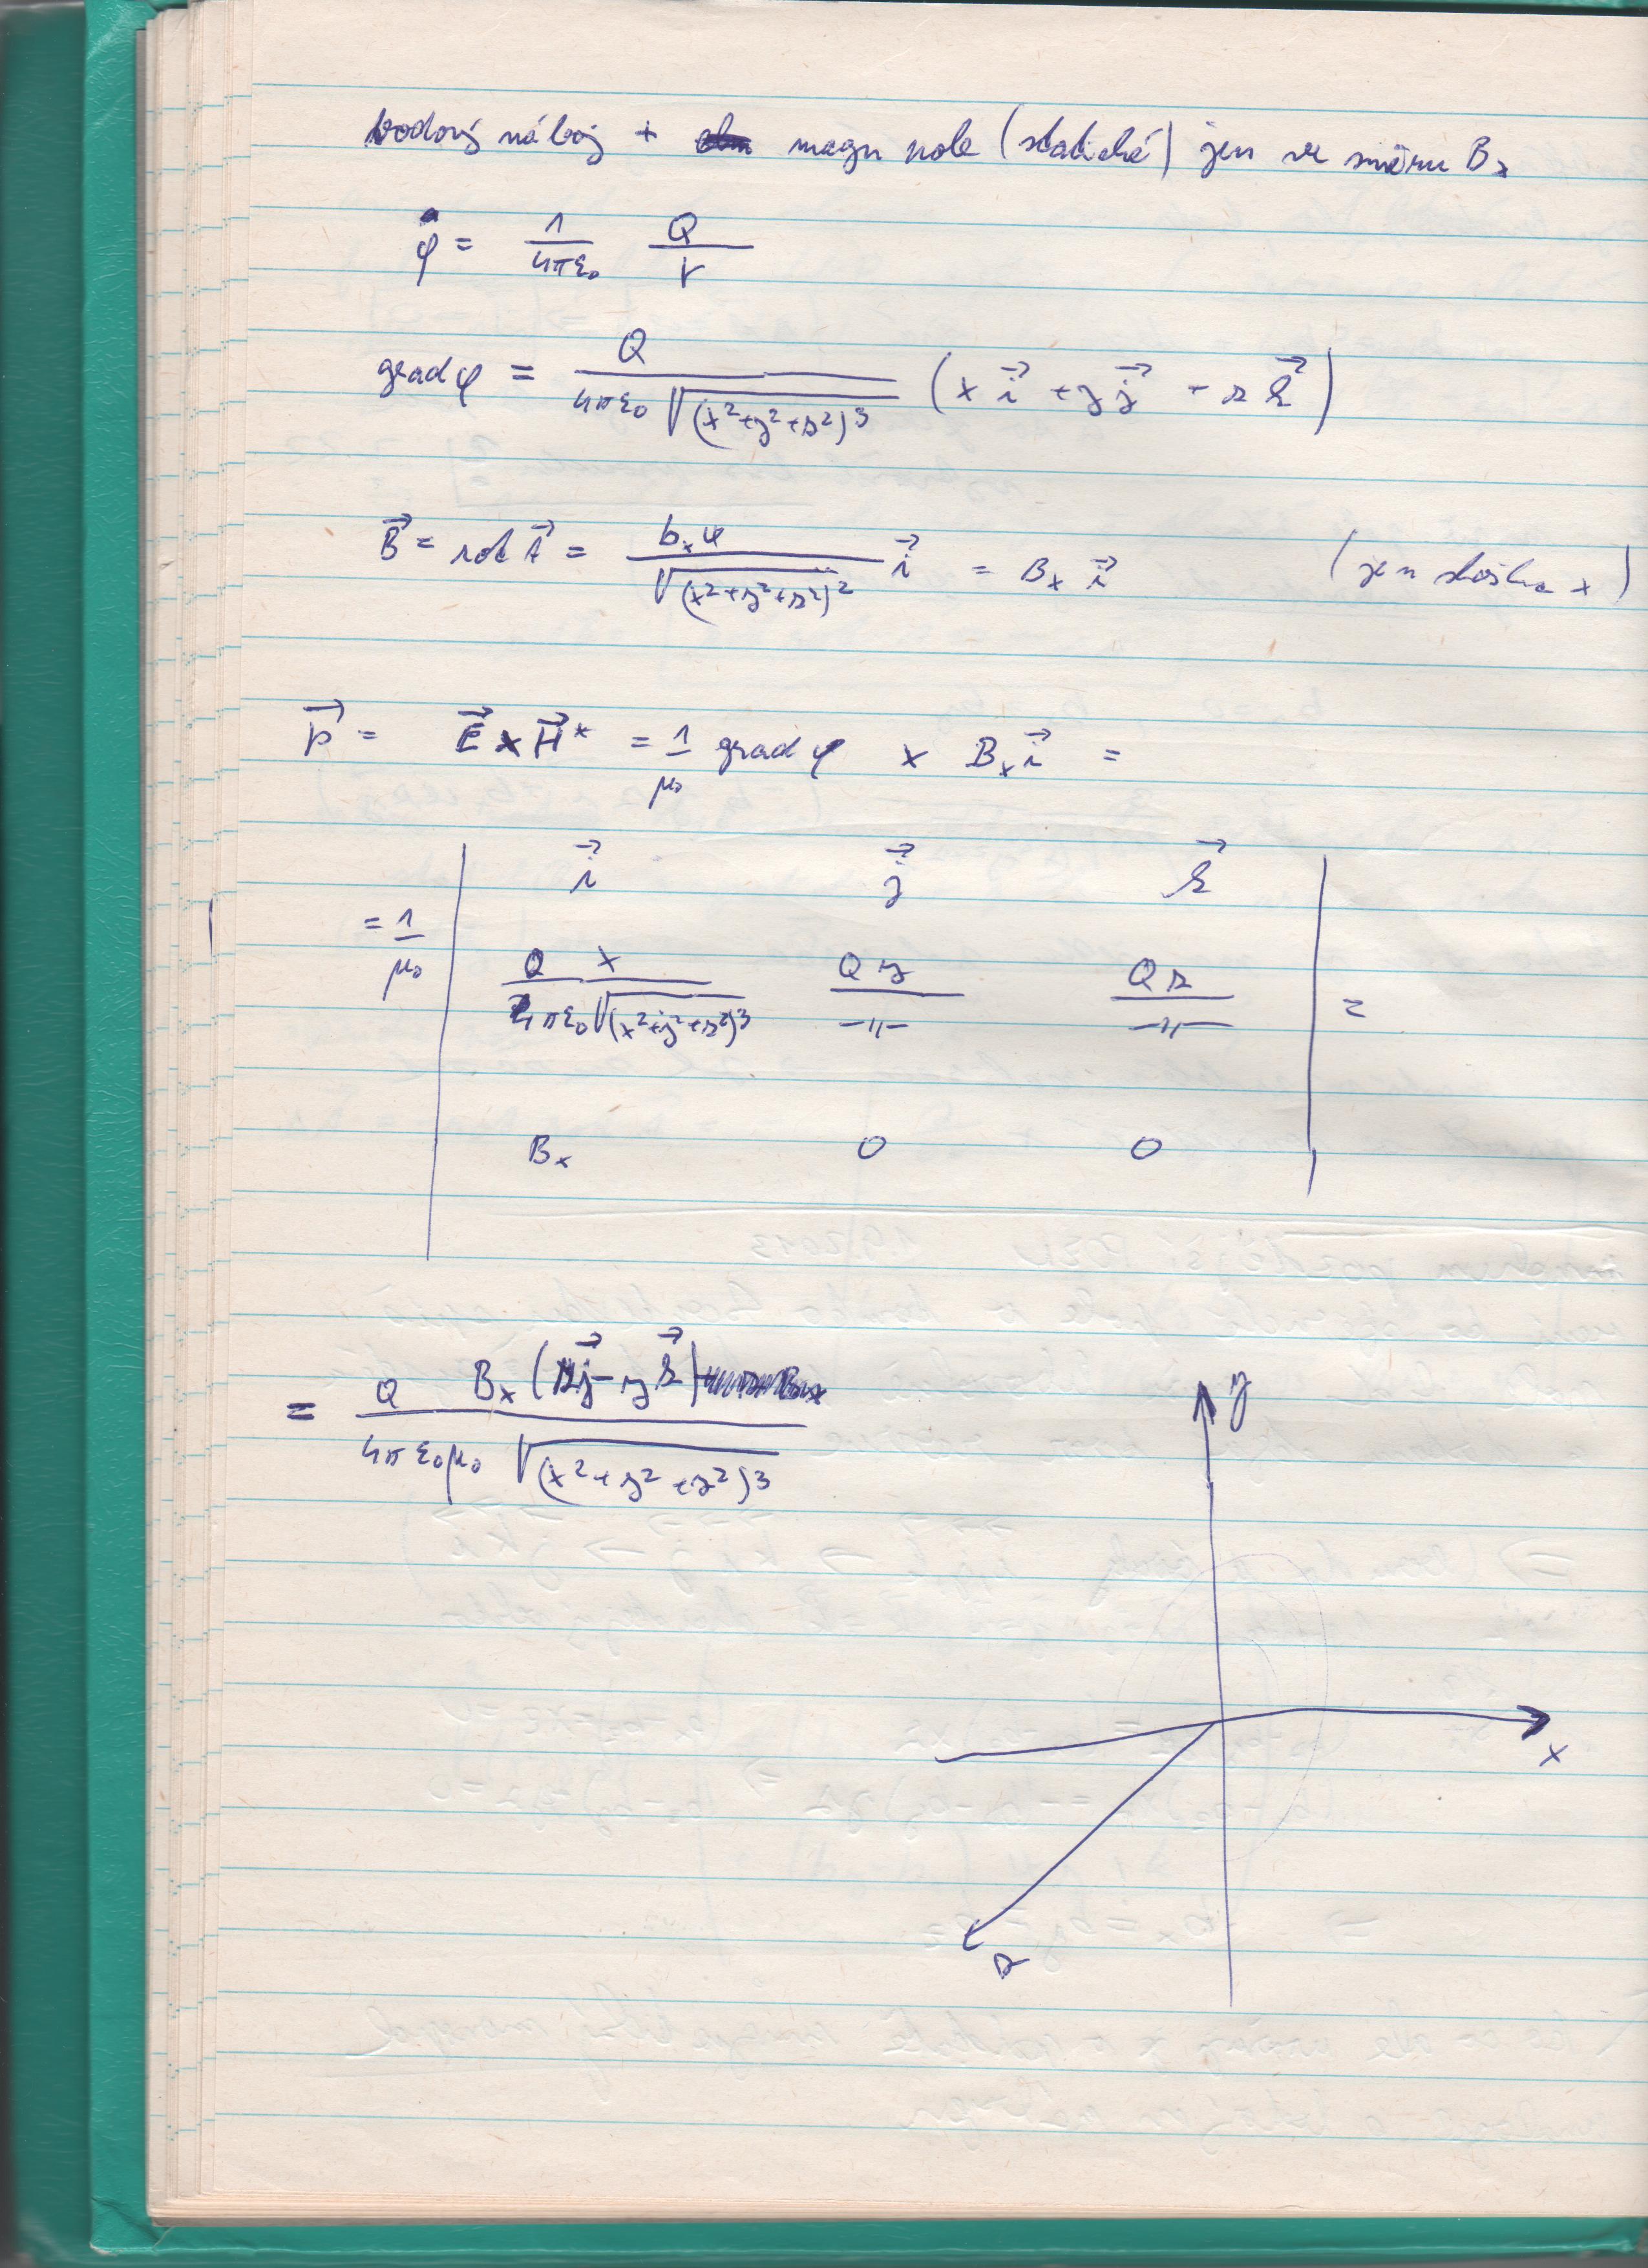 bodový náboj + magn pole (statické) jen ve směru Bx
φ = 1/(4πε₀) Q/r
grad φ = Q/(4πε₀ √(x²+y²+z²)³) (x i⃗ + y j⃗ + z k⃗)
B⃗ = rot A⃗ = bₓ φ/√(x²+y²+z²)² i⃗ = Bₓ i⃗ (jen složka x)
p⃗ = E⃗ × H⃗* = 1/μ₀ grad φ × Bₓ i⃗ =
i⃗ j⃗ k⃗
= 1/μ₀ | Q x/(4πε₀ √(x²+y²+z²)³) Q y/—〃— Q z/—〃— | =
Bₓ 0 0
= Q Bₓ (z j⃗ - y k⃗)/(4π ε₀ μ₀ √(x²+y²+z²)³)
y
x
z